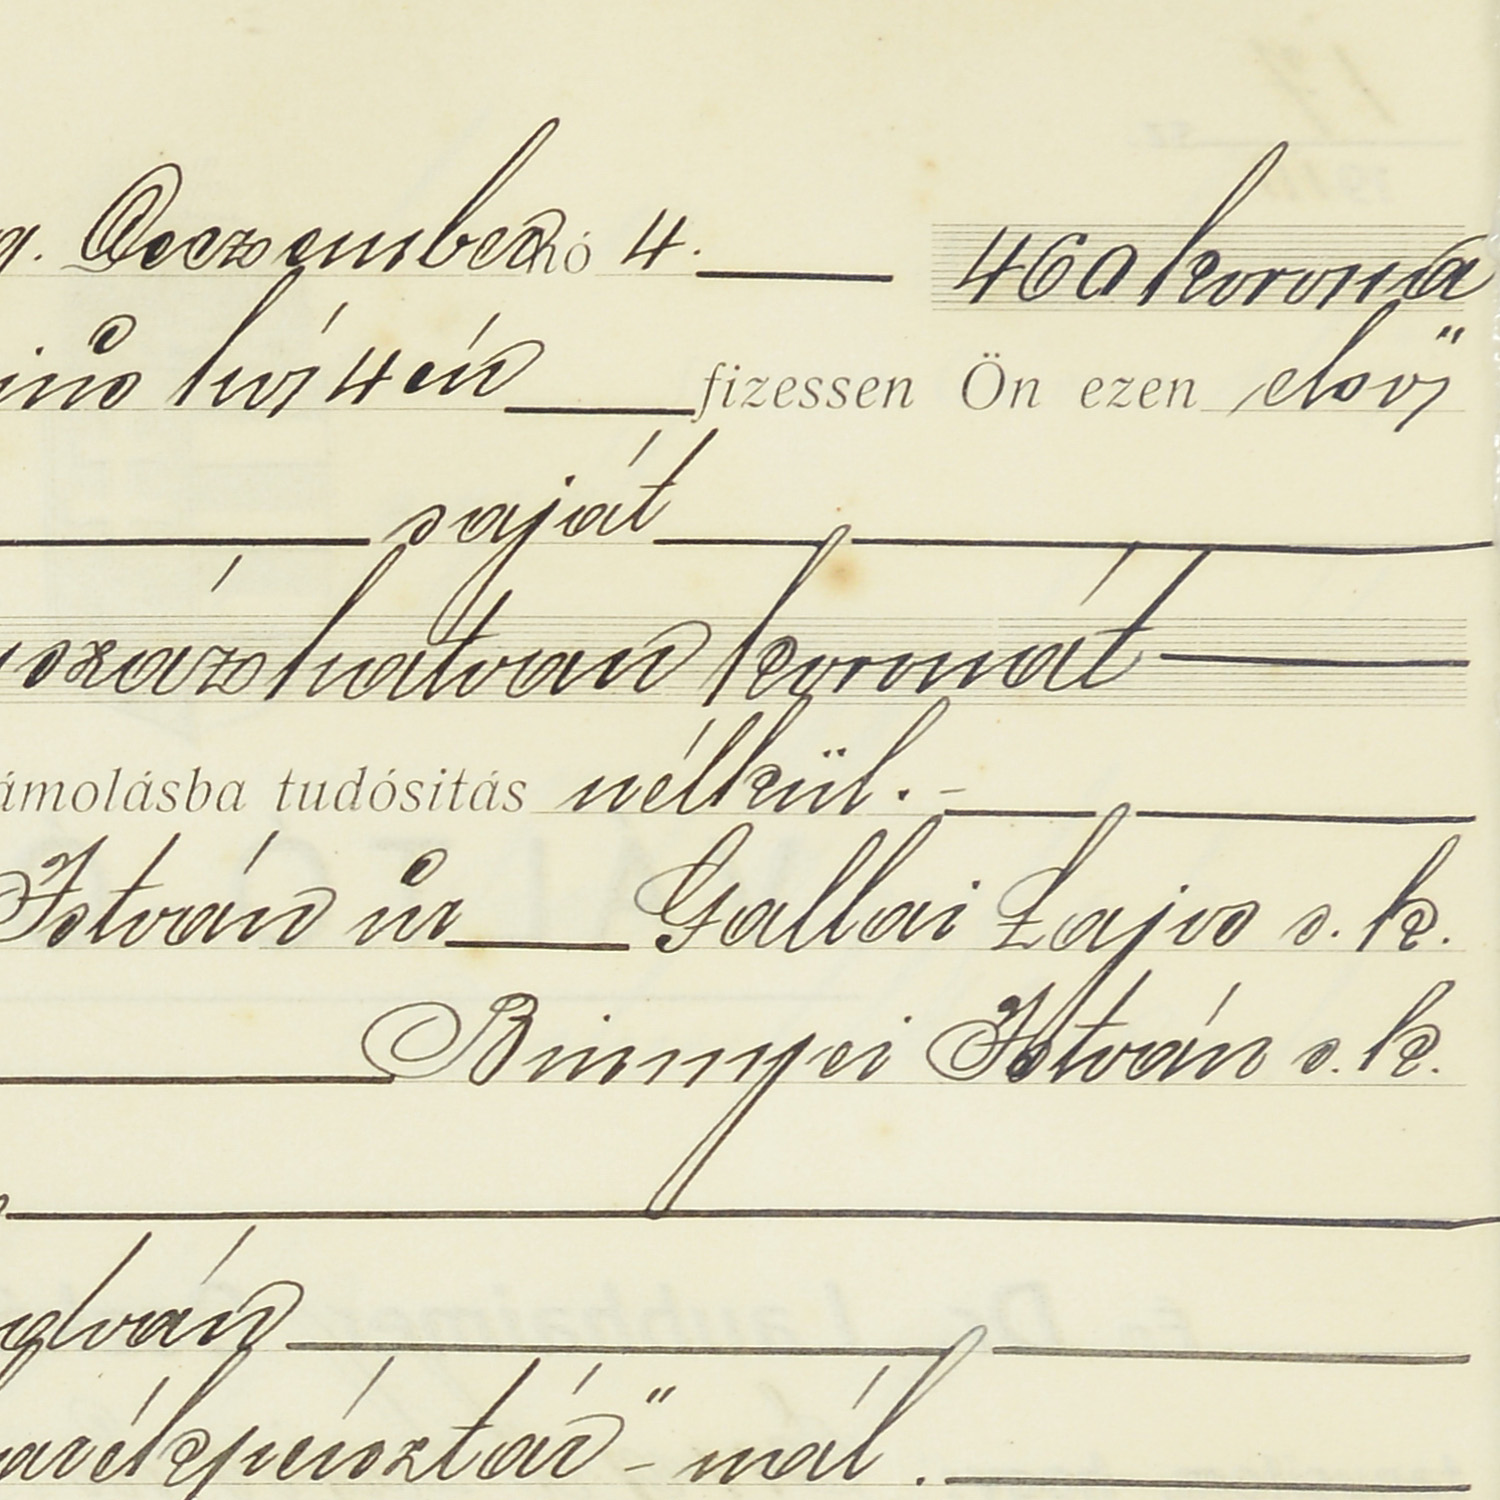 Deczember hó 4. 460 korona
hó 4én fizessen Ön ezen első
saját
száz hatvan koronát
ámolásba tudósitás nélkül. -
István úr Gallai Lajos s. k.
Binnyei István s. k.
arékpénztár" - nál.